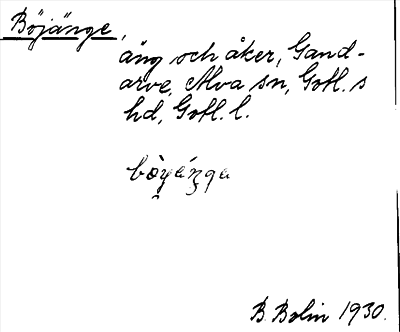 Böjänge,
äng och åker, Gand-
arve, Alva sn, Gotl. s
hd, Gotl. l.
B Bolin 1930.